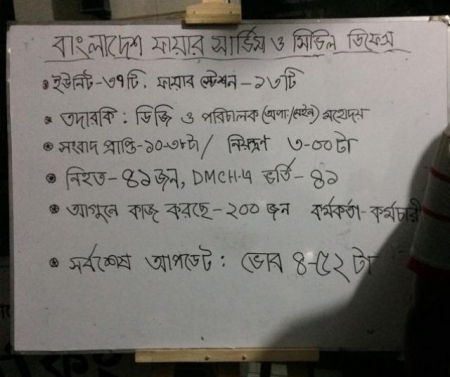 বাংলাদেশ ফায়ার সার্ভিস ও সিভিল ডিফেন্স
• ইউনিট-৩৭টি, ফায়ার স্টেশন-১৩টি
• তদারকি : ডিজি ও পরিচালক (অপাঃ/মেইন) মহোদয়
• সংবাদ প্রাপ্তি-১০-৩৮টা / নিয়ন্ত্রণ ৩-০০টা
• নিহত-৪১জন, DMCH-এ ভর্তি-৪১
• আগুনে কাজ করছে-২০০ জন কর্মকর্তা-কর্মচারী
• সর্বশেষ আপডেট : ভোর ৪-৫২ টা